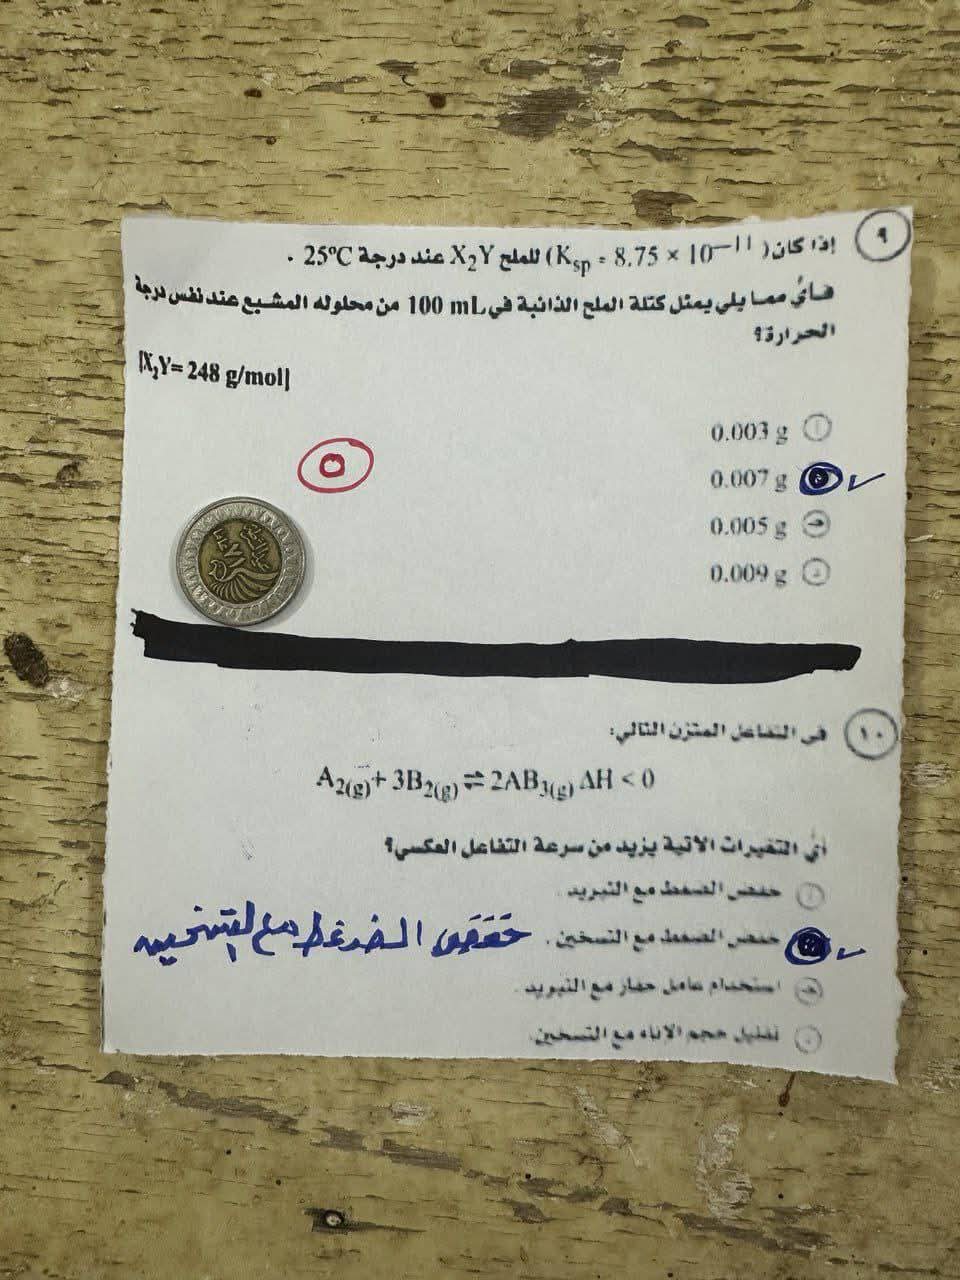 ٩
إذا كان (Ksp = 8.75 × 10−11) للملح X2Y عند درجة 25ºC .
فأي مما يلي يمثل كتلة الملح الذائبة في 100 mL من محلوله المشبع عند نفس درجة
الحرارة؟
[X2Y= 248 g/mol]
أ 0.003 g
0.007 g
ج 0.005 g
د 0.009 g
١٠
في التفاعل المتزن التالي:
A2(g)+ 3B2(g) ⇌ 2AB3(g) ΔH < 0
أي التغيرات الآتية يزيد من سرعة التفاعل العكسي؟
أ خفض الضغط مع التبريد .
خفض الضغط مع التسخين . خفض الضغط مع التسخين
ج استخدام عامل حفاز مع التبريد .
د تقليل حجم الاناء مع التسخين.